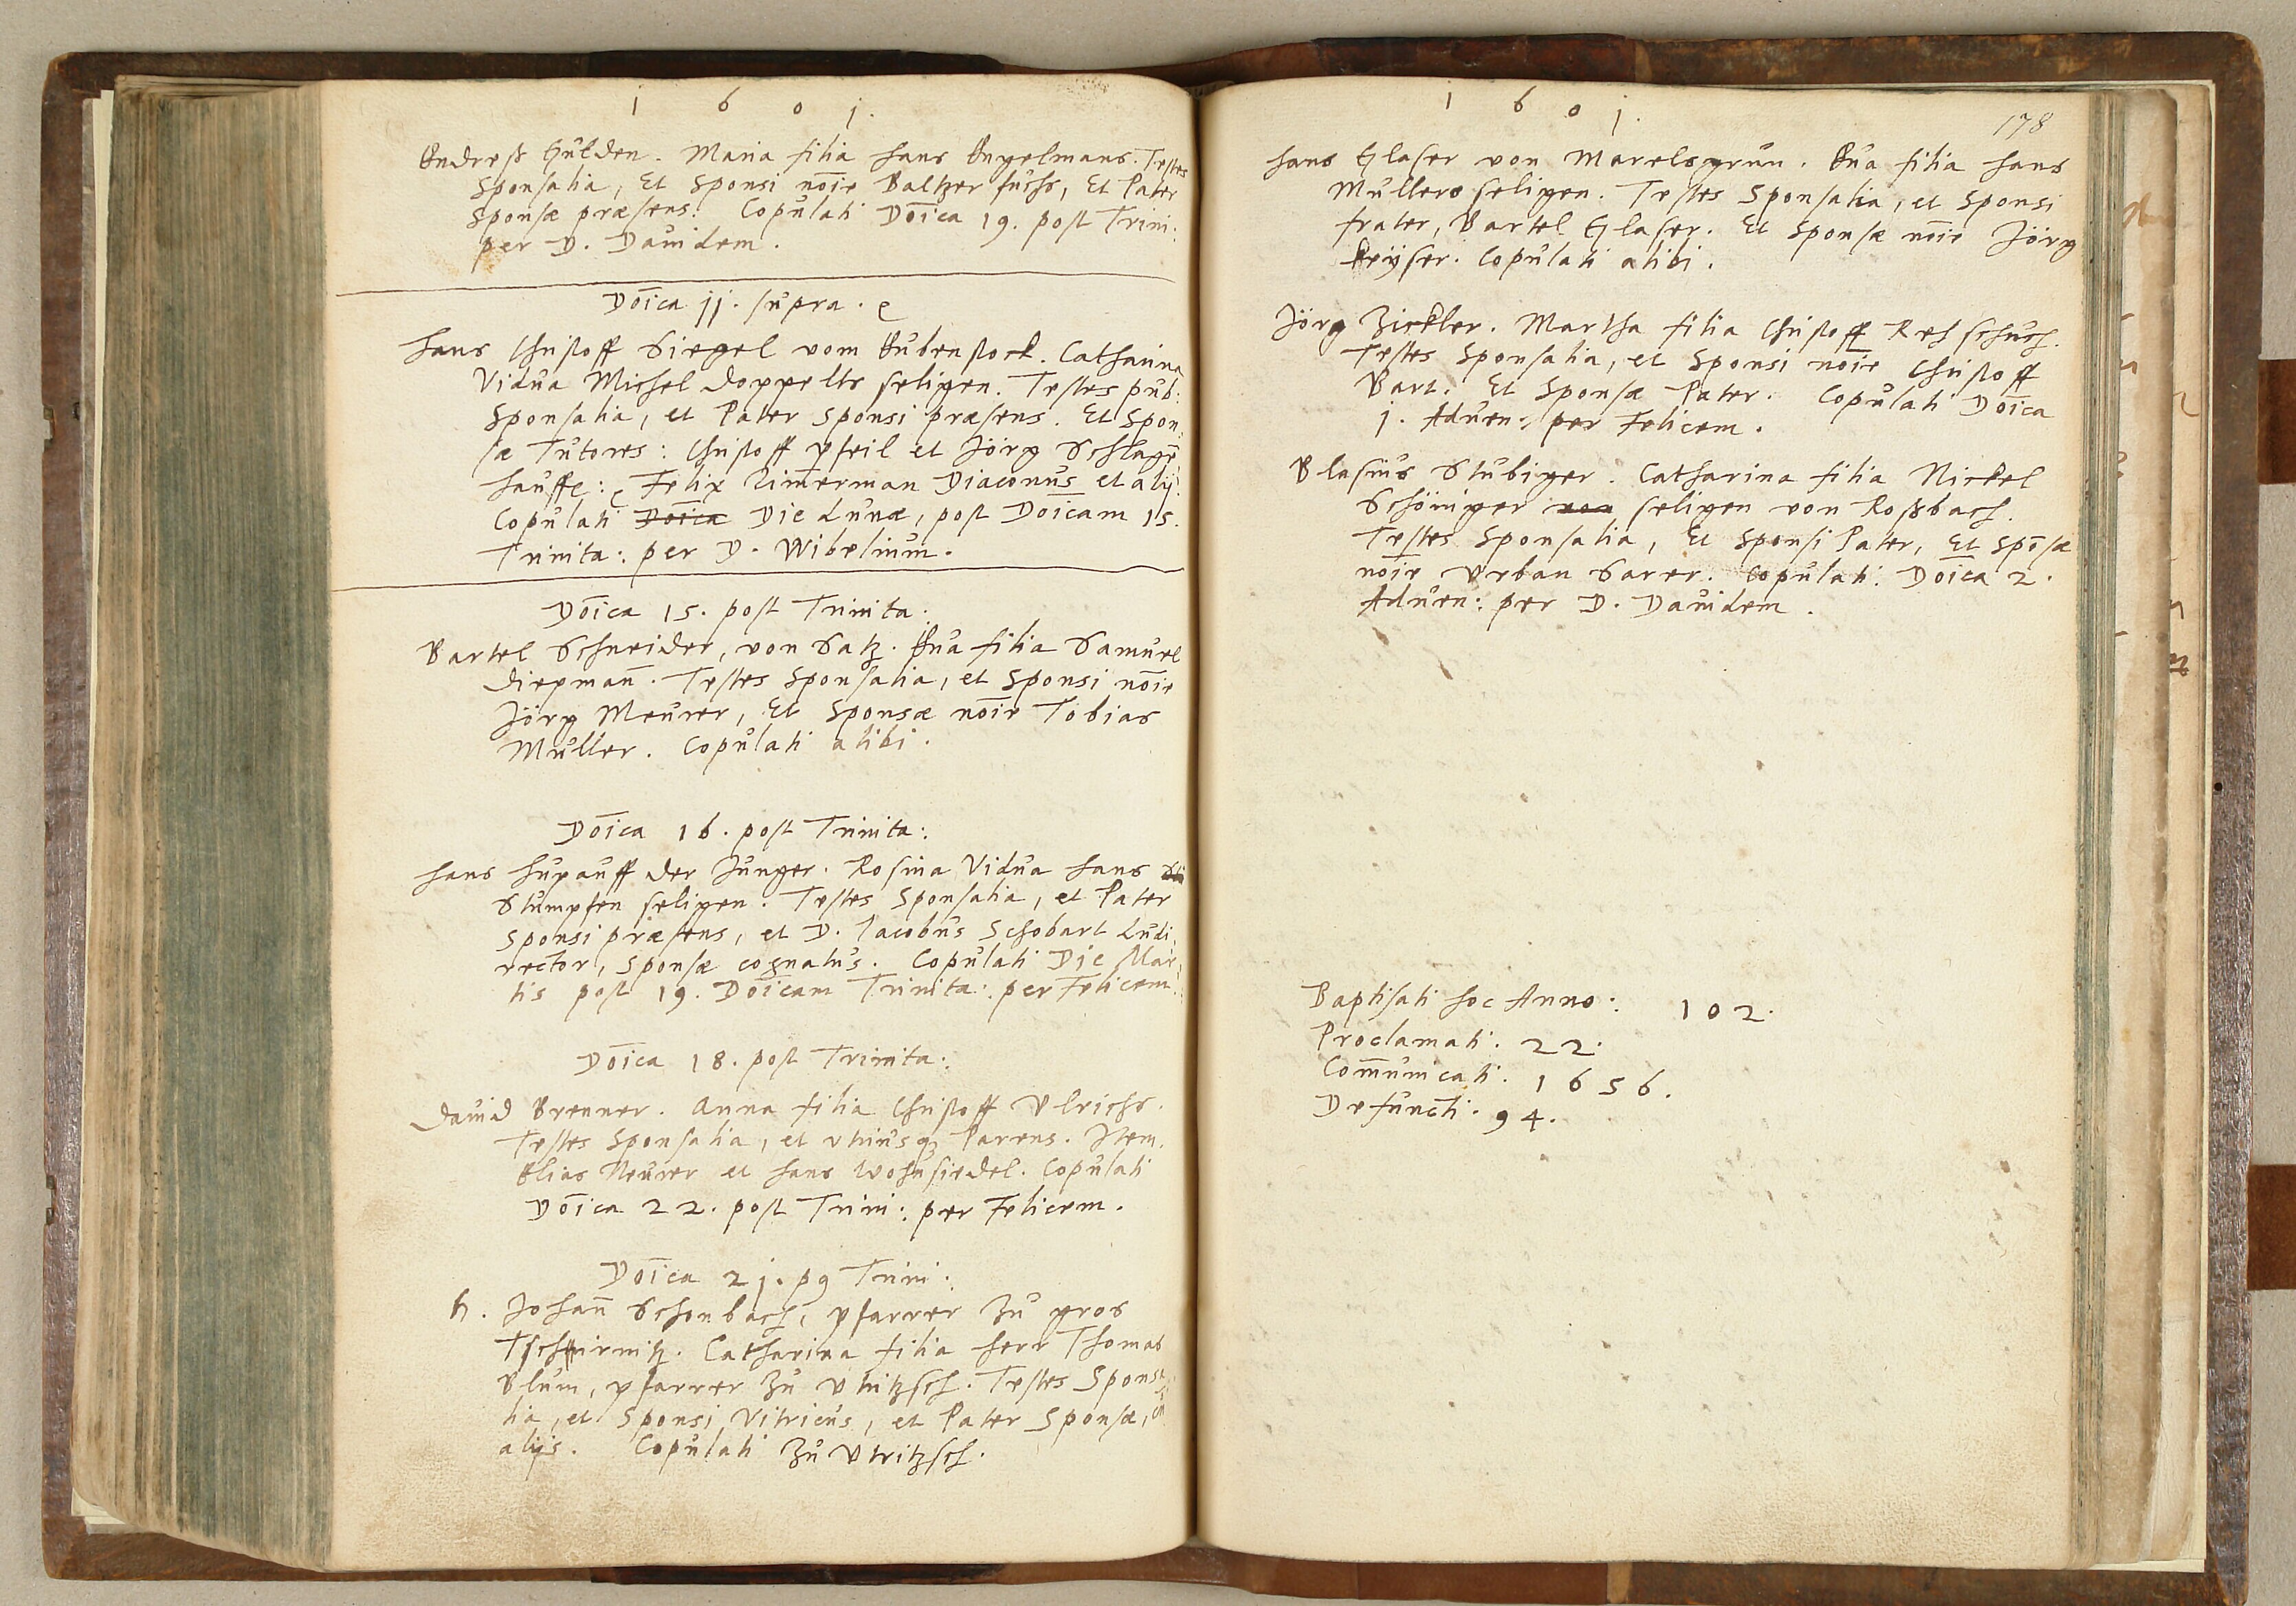 1 6 0 j.
Endreß Gulden. Maria filia Hans Engelmans. Testes
Sponsalia, Et Sponsi noīe Baltzer fuchs, Et Pater
Sponsæ præsens. Copulati Doīca 19. post Trini:
per D. Dauidem.
Doīca jj. supra.
Hans Christoff Siegel vom Eubenstock. Catharina
Vidua Michel Doppelts seligen. Testes pub:
Sponsalia, et Pater Sponsi præsens. Et Spon,
sæ Tutores: Christoff Pfeil et Jörg Schlagē
hauffe: Felix Zim̄erman Diaconus et alij.
Copulati Doīca Die Lunæ, post Doīcam 15.
Trinita: per D. Wibelium.
Doīca 15. post Trinita:
Bartel Schneider, von Satz. Eua filia Samuel
Diepman̄. Testes Sponsalia, et Sponsi noīe
Jörg Meurer, Et Sponsæ noīe Tobias
Muller. Copulati alibi.
Doīca 16. post Trinita:
Hans Hupauff der Junger. Rosina Vidua Hans
Stumpfen seligen. Testes Sponsalia, et Pater
Sponsi præsens, et D. Jacobus Schobart Ludi,
rector, Sponsæ cognatus. Copulati Die Mar,
tis post 19. Doīcam Trinita: per Felicem.
Doīca 18. post Trinita:
Dauid Brenner. Anna filia Christoff Vlrichs.
Testes Sponsalia, et vtriusq3 Parens. Item.
Elias Neurer et Hans Wohnsiedel. Copulati
Doīca 22. post Trini: per Felicem.
Doīca 2j. p9 Trini:
H. Johan̄ Schonbach, Pfarrer zu gros
Tschirnitz. Catharina filia Herr Thomas
Blum, Pfarrer zu Vtritzsch. Testes Sponsa
lia, et Sponsi Vitricus, et Pater Sponsæ, cū
alijs. Copulati zu Vtritzsch.
1 6 0 j.
178
Hans Glaser von Marelsgrün. Eua filia Hans
Mullers seligen. Testes Sponsalia, et Sponsi
frater, Bartel Glaser. Et Sponsæ noīe Jörg
Keÿser. Copulati alibi.
Jörg Zickler. Martha filia Christoff Rehschuch.
Testes Sponsalia, et Sponsi noīe Christoff
Bart. Et Sponsæ Pater. Copulati Doīca
j. Aduen: per Felicem.
Blasius Stubiger. Catharina filia Nickel
Schöniger von seligen von Roßbach.
Testes Sponsalia, Et Sponsi Pater, Et Spōsæ
noīe Vrban Sarer. Copulati. Doīca 2.
Aduen: per D. Dauidem.
Baptisati hoc Anno: 102.
Proclamati. 22.
Com̄unicati. 1656.
Defuncti. 94.